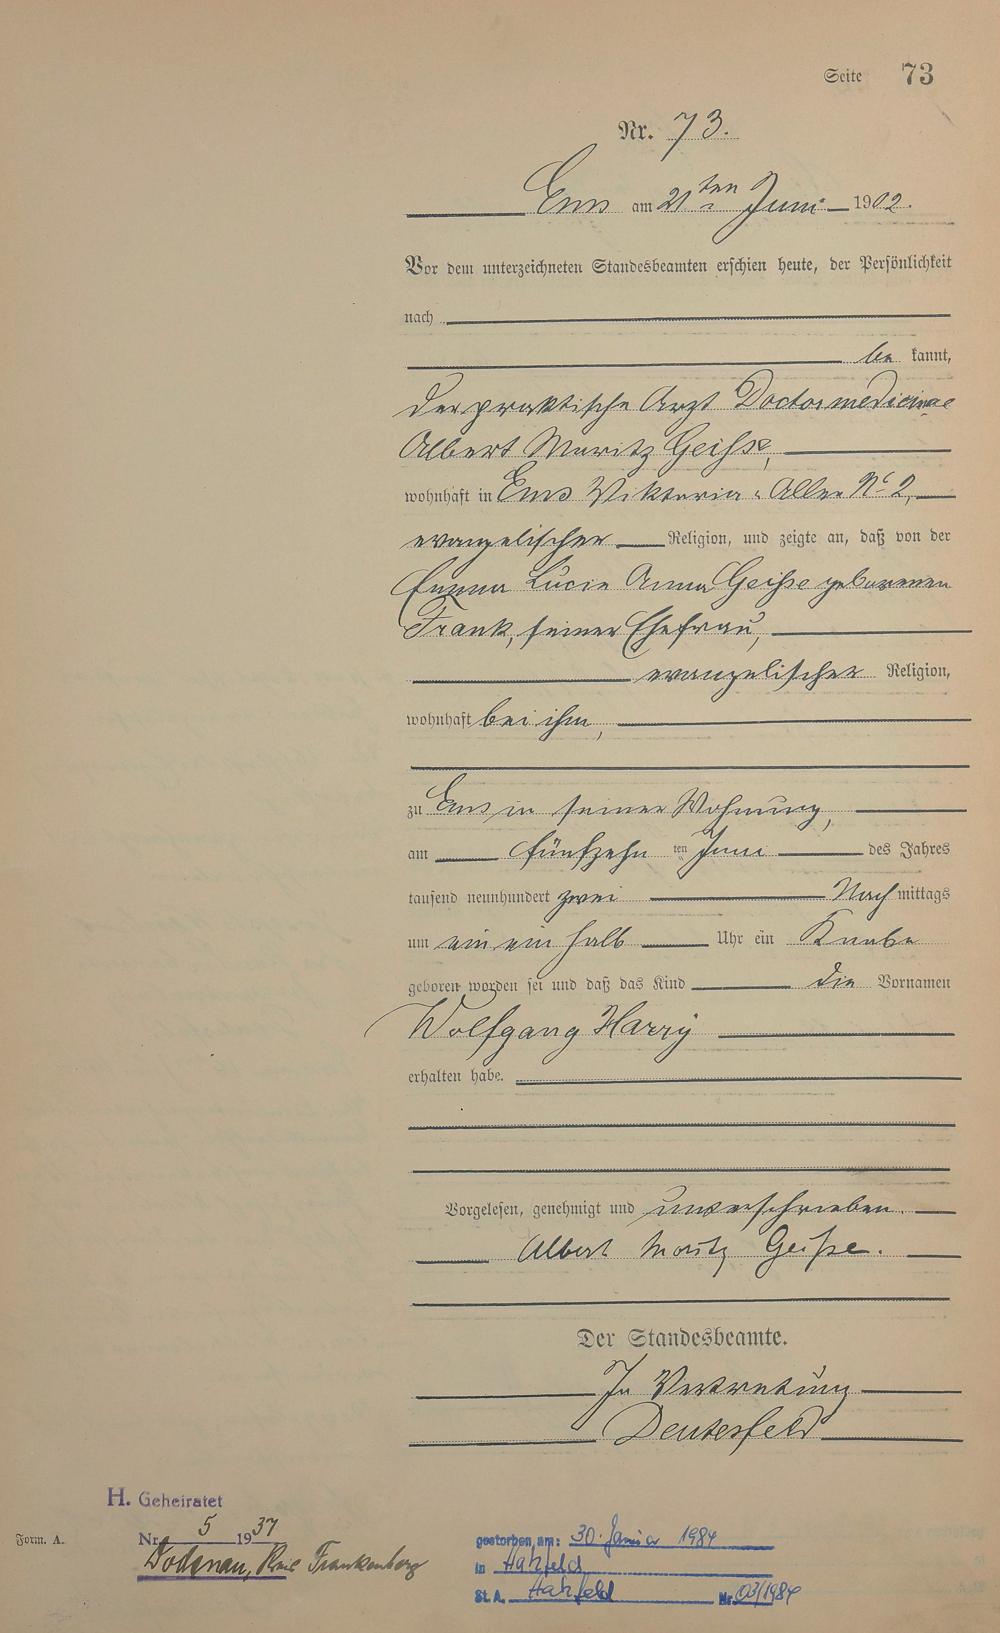 Seite 73
Nr. 73.
Ems am 21ten Juni 1902.
Vor dem unterzeichneten Standesbeamten erschien heute, der Persönlichkeit
nach
be kannt,
der praktische Arzt Doctor medicinae
Albert Moritz Geiße,
wohnhaft in Ems Viktoria-Allee No 2,
evangelischer Religion, und zeigte an, daß von der
Emma Lucie Anna Geiße geborenen
Frank, seiner Ehefrau,
evangelischer Religion,
wohnhaft bei ihm,
zu Ems in seiner Wohnung,
am fünfzehn ten Juni des Jahres
tausend neunhundert zwei Nach mittags
um ein ein halb Uhr ein Knabe
geboren worden sei und daß das Kind die Vornamen
Wolfgang Harry
erhalten habe.
Vorgelesen, genehmigt und unterschrieben.
Albert Moritz Geiße.
Der Standesbeamte.
In Vertretung
Deusterfeld
H. Geheiratet
Nr. 5 1937
Dodenau, Kreis Frankenberg
Form. A.
gestorben am: 30. Januar 1984
in Hatzfeld
St. A. Hatzfeld Nr. 03/1984